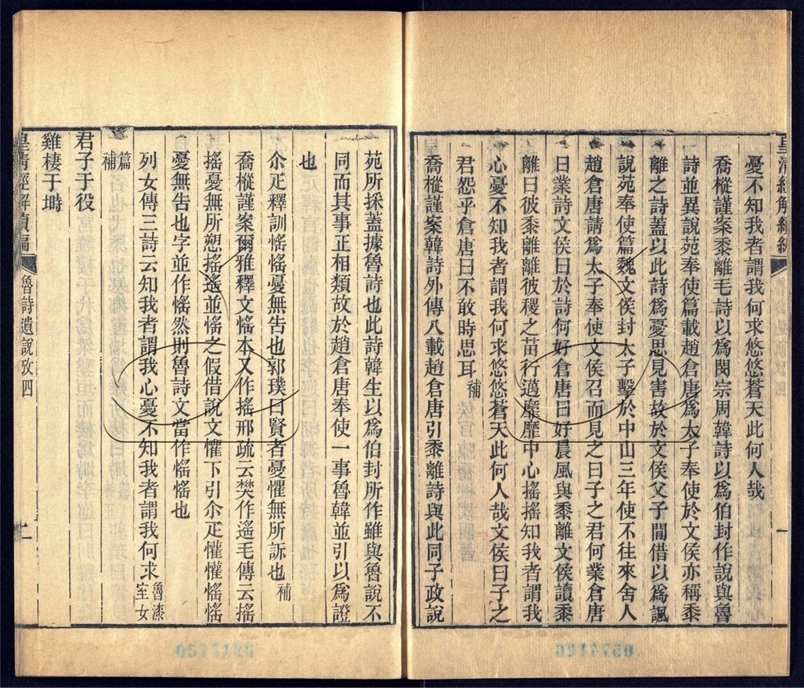 憂不知我者謂我何求悠悠蒼天此何人哉
喬樅謹案黍離毛詩以爲閔宗周韓詩以爲伯封作說與魯
詩並異說苑奉使篇載趙倉唐爲太子奉使於文侯亦稱黍
離之詩蓋以此詩爲憂思見害故於文侯父子閒借以爲諷
說苑奉使篇魏文侯封太子擊於中山三年使不往來舍人
趙倉唐請爲太子奉使文侯召而見之曰子之君何業倉唐
曰業詩文侯曰於詩何好倉唐曰好晨風與黍離文侯讀黍
離曰彼黍離離彼稷之苗行邁靡靡中心搖搖知我者謂我
心憂不知我者謂我何求悠悠蒼天此何人哉文侯曰子之
君怨乎倉唐曰不敢時思耳補
喬樅謹案韓詩外傳八載趙倉唐引黍離詩與此同子政說
苑所採蓋據魯詩也此詩韓生以爲伯封所作雖與魯說不
同而其事正相類故於趙倉唐奉使一事魯韓並引以爲證
也
尒疋釋訓愮愮憂無告也郭璞曰賢者憂懼無所訴也補
喬樅謹案爾雅釋文愮本又作搖邢疏云樊作遙毛傳云搖
搖憂無所愬搖遙並愮之假借說文懽下引尒疋懽懽愮愮
憂無告也字並作愮然則魯詩文當作愮愮也
列女傳三詩云知我者謂我心憂不知我者謂我何求魯漆室女
篇補
君子于役
雞棲于塒
皇淸經解續編
魯詩遺說攷四
0574126
0574126